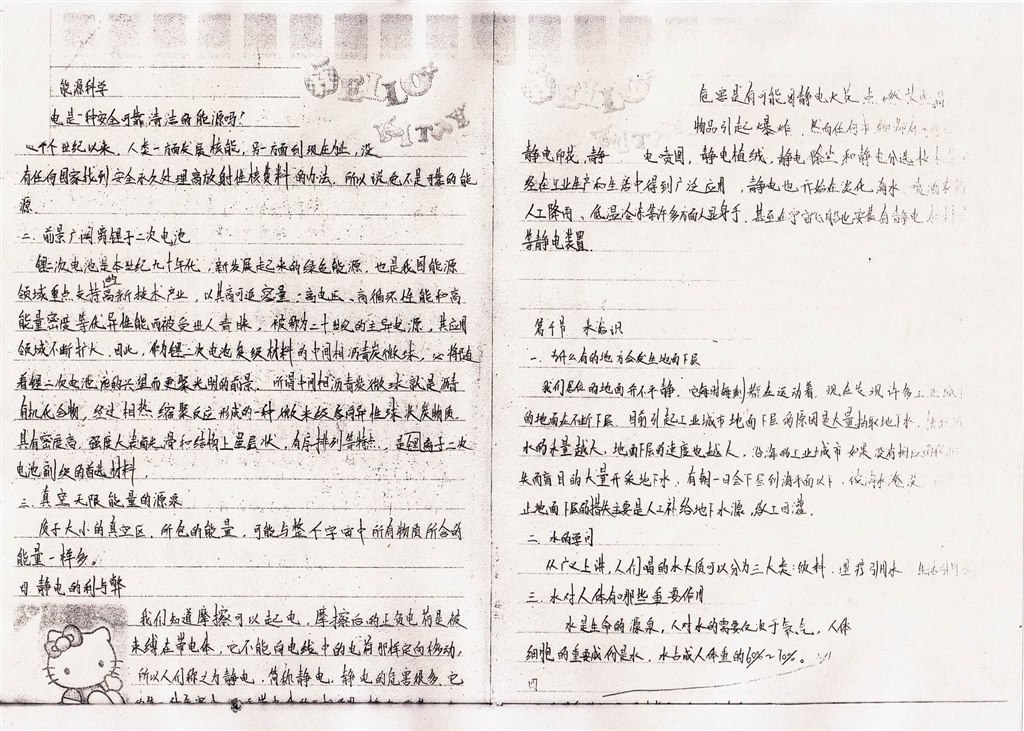 HELLO
KITTY
能源科学
电是一种安全可靠清洁的能源吗?
个世纪以来,人类一方面发展核能,另一方面到现在处,没
有任何国家找到安全永久处理高放射性核资料的办法,所以说它不是可靠的能
源.
二.前景广阔锂子二次电池
锂二次电池是本世纪九十年代,新发展起来的绿色能源,也是我国能源
领域重点支持的高新技术产业,以其高可逆容量.高电压、高循环性能和高
能量密度等优异性能而被受世人青睐,被称为二十世纪的主导电源,其应用
领域不断扩大.因此,作为锂二次电池负级材料的中间相沥青炭微球,必将随
着锂二次电池的兴望而更聚光明的前景.所谓中间相沥青炭微球就是沥青
有机化合物,经过相热缩聚反应形成的一种微米级各向异性球状炭物质.
具有密度高,强度大表面光滑和结构上呈层状,有序排列等特点,是锂离子二次
电池制级的首选材料.
三.真空无限能量的源泉
质子大小的真空区,所包的能量,可能与整个宇宙中所有物质所含的
能量一样多。
四 静电的利与弊
我们知道摩擦可以起电,摩擦后的正负电荷是被
束缚在带电体,它不能向电线中的电荷那样定向移动,
所以人们称之为静电,简称静电.静电的危害很多,它
危害是有可能因静电火花点燃
物品引起爆炸.然而任何事物都有
静电印花,静 电喷图,静电植绒,静电除尘和静电分选技术
经在工业生产和生活中得到广泛应用,静电也开始在淡化海水
人工降雨、低温冷冻等许多方面大显身手,甚至在宇宙飞船也安装有静电
等静电装置.
第 节 水知识
一.为什么有的地方会发生地面下层
我们居住的地面并不平静,它每时每刻都在运动着.现在发现许多工
的地面在不断下层.目前引起工业城市地面下层的原因是大量抽取地下水,
水的水量越大,地面下层的速度也越大,沿海的工业城市如果没有相应的
失而盲目的大量开采地下水,有朝一日会下层到海平面以下,
止地面下层的措失主要是人工补给地下水源,或工回灌.
二.水的学问
从广义上讲,人们喝的水大质可以分为三大类:饮料.医疗引用水
三.水对人体有哪些重要作用
水是生命的源泉,人对水的需要仅次于氧气,人体
细胞的重要成份是水,水占成人体重的60%~70%。
四